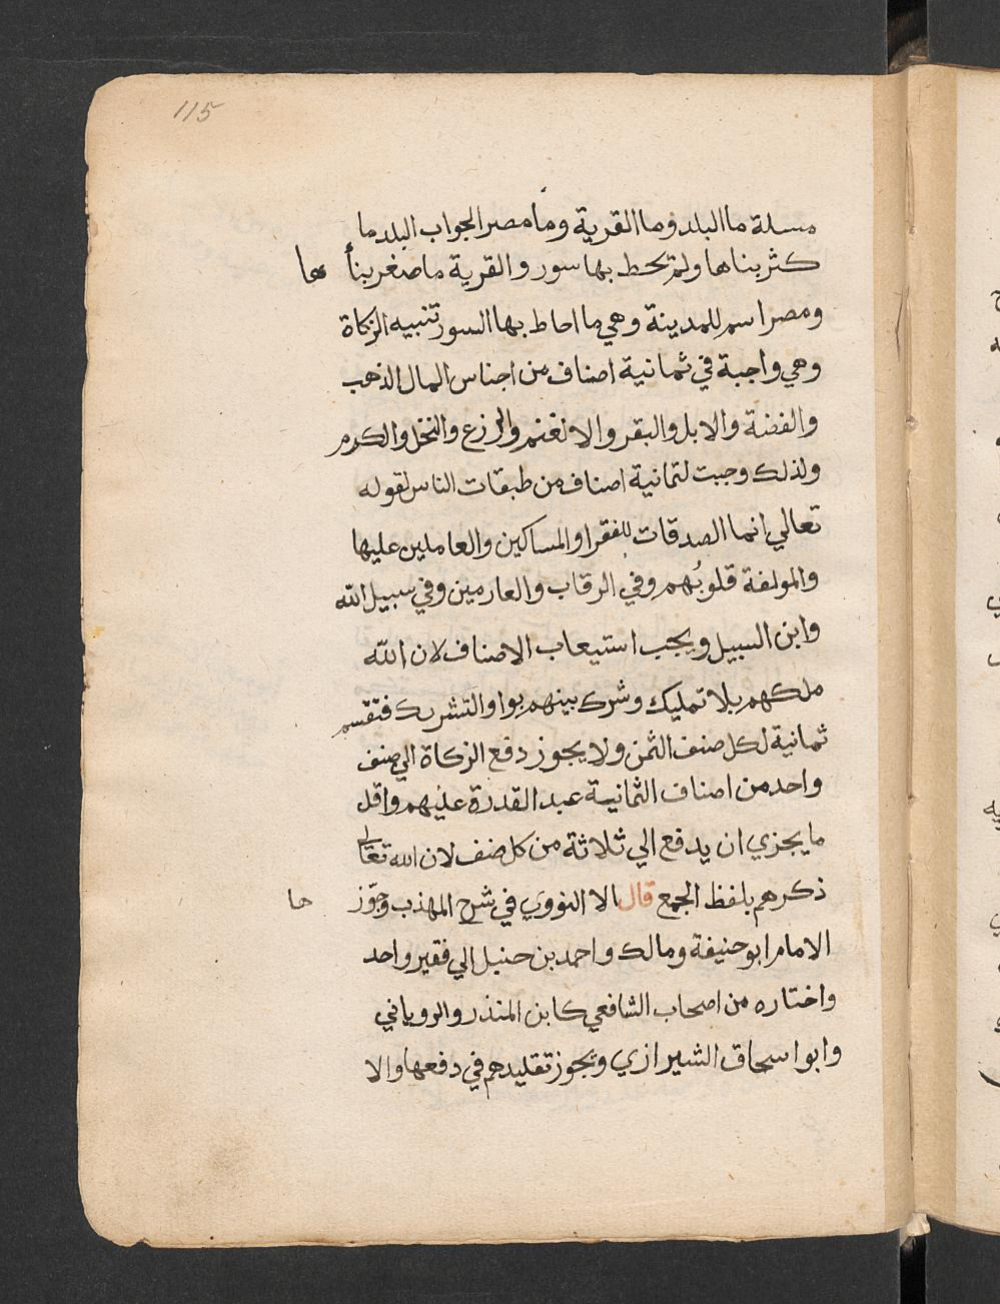 115
مسلة ما البلد وما القرية وما مصر الجواب البلد ما
كثر بناها ولم تحط بها سور والقرية ما صغر بنأ ها
ومصر اسم للمدينة وهي ما احاط بها السور تنبيه الزكاة
وهي واجبة في ثمانية اصناف من اجناس المال الذهب
والفضة والابل والبقر والا نغنم والرزع والنخل والكرم
ولذلك وجبت لثمانية اصناف من طبقات الناس لقوله
تعالي انما الصدقات للفقرا والمساكين والعاملين عليها
والمولفة قلوبُهم وفي الرقاب والعارمين وفي سبيل الله
وابن السبيل ويجب استيعاب الاصناف لان الله
ملكهم بلا تمليك وشرك بينهم بواو التشريك فتقسم
ثمانية لكل صنف الثمن ولا يجوز دفع الزكاة الي صنف
واحد من اصناف الثمانية عبد القدرة عليهم واقل
ما يجزي ان يدفع الي ثلاثة من كل صنف لان الله تعالي
ذكرهم بلفظ الجمع قال الا النووي في شرح المهذب وجوّز ها
الامام ابو حنيفة ومالك واحمد بن حنبل الي فقير واحد
واختاره من اصحاب الشافعي كابن المنذر والروياني
وابوا سحاق الشيرازي ويجوز تقليدهم في دفعها والا